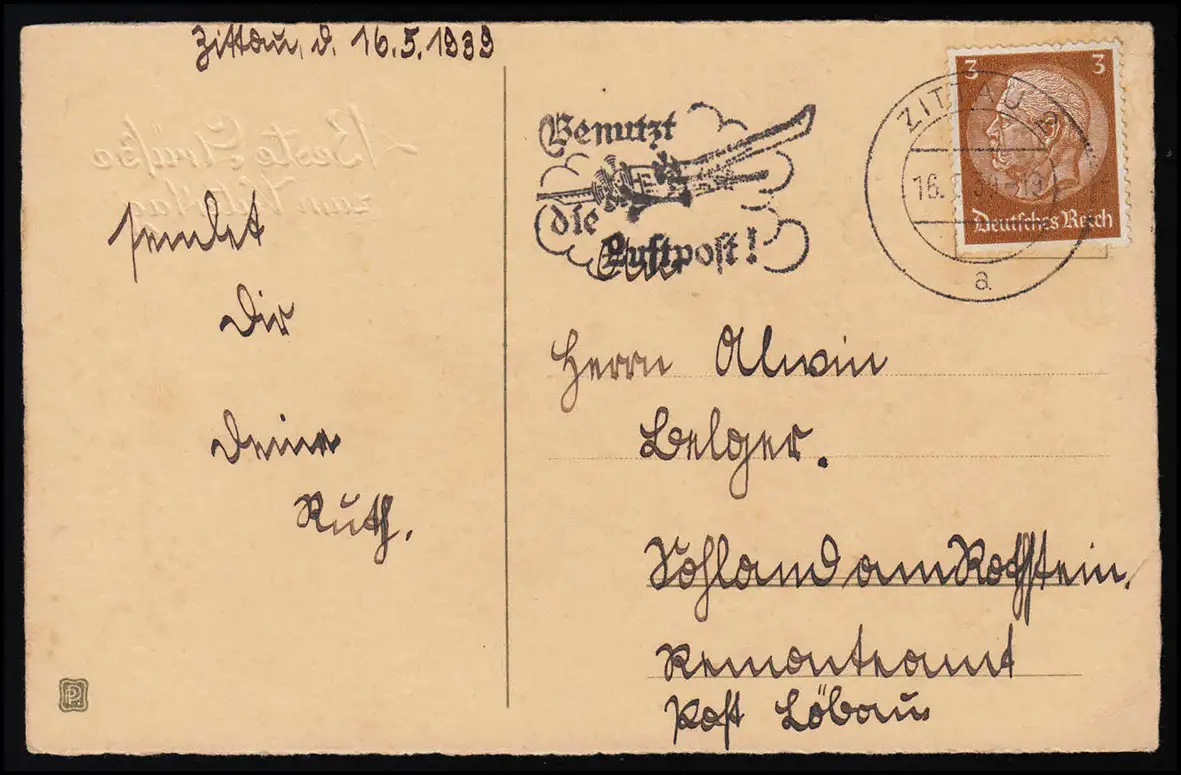 Zittau, d. 16.5.1939
Beste Grüße
zum
sendet
Dir
Deine
Ruth.
Benutzt
die
Luftpost!
ZITTAU 2
16.
a
3 3
Deutsches Reich
Herrn Alwin
Belger.
Sohland am Rothstein.
Remonteamt
Post Löbau